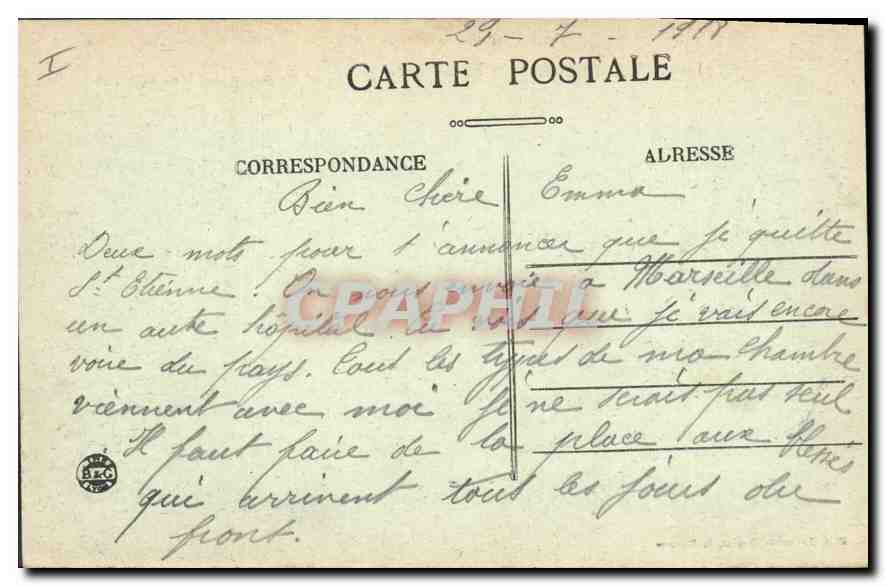 29 - 7 - 1918
I
CARTE POSTALE
CORRESPONDANCE
ADRESSE
Bien Chère Emma
Deux mots pour t'annoncer que je quitte
St Etienne. On nous envoie à Marseille dans
un autre hôpital. Tu vois que je vais encore
voir du pays. Tous les types de ma chambre
viennent avec moi je ne serais pas seul
Il faut faire de la place aux blessés
qui arrivent tous les jours du
front.
B & G
LYON
CPAPHIL